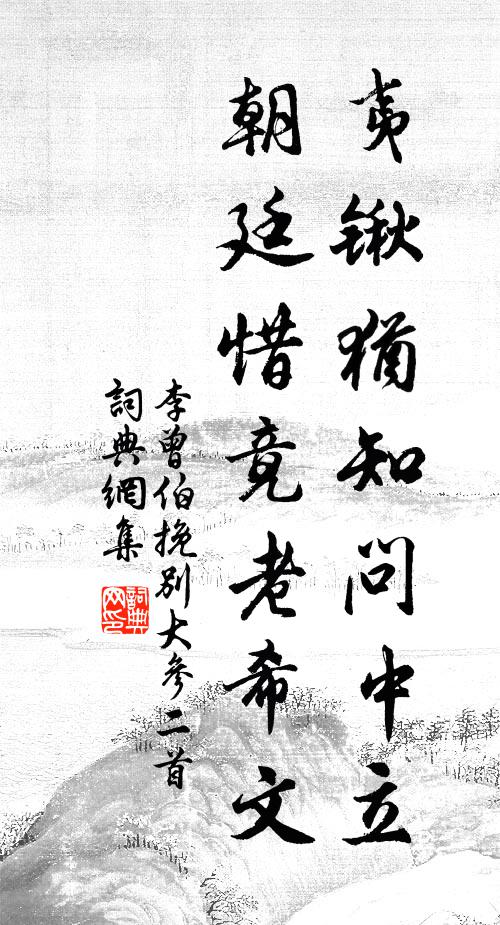 夷鍬猶知問中立
朝廷惜竟老希文
李曾伯挽別大參二首
詞典網集
詞典
网印